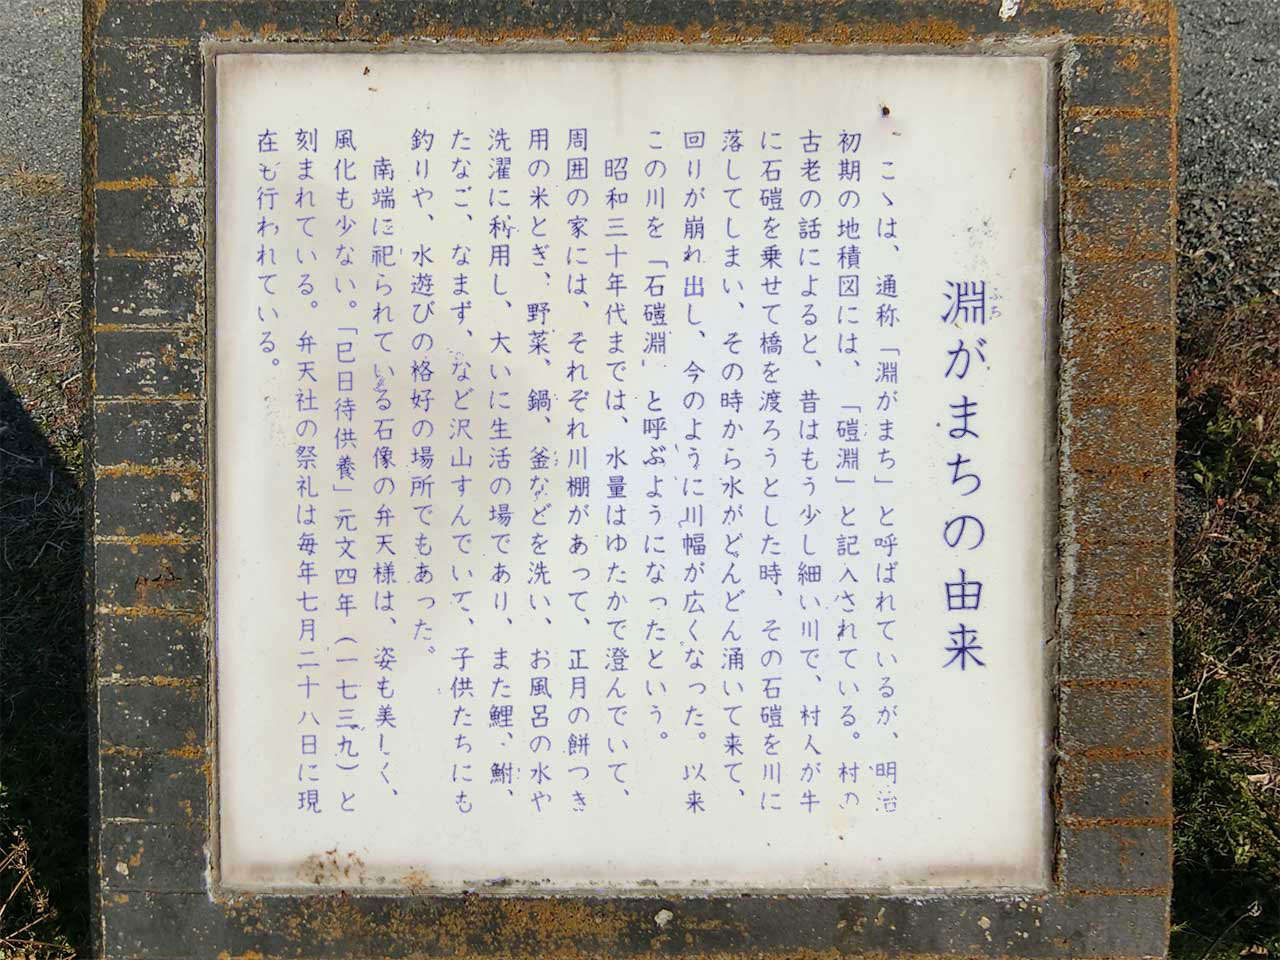 淵がまちの由来
ふち
こゝは、通称「淵がまち」と呼ばれているが、明治
初期の地積図には、「磑淵」と記入されている。村の
古老の話によると、昔はもう少し細い川で、村人が牛
に石磑を乗せて橋を渡ろうとした時、その石磑を川に
落してしまい、その時から水がどんどん涌いて来て、
回りが崩れ出し、今のように川幅が広くなった。以来
この川を「石磑淵」と呼ぶようになったという。
昭和三十年代までは、水量はゆたかで澄んでいて、
周囲の家には、それぞれ川棚があって、正月の餅つき
用の米とぎ、野菜、鍋、釜などを洗い、お風呂の水や
洗濯に利用し、大いに生活の場であり、また鯉、鮒、
たなご、なまず、など沢山すんでいて、子供たちにも
釣りや、水遊びの格好の場所でもあった。
南端に祀られている石像の弁天様は、姿も美しく、
風化も少ない。「巳日待供養」元文四年(一七三九)と
刻まれている。弁天社の祭礼は毎年七月二十八日に現
在も行われている。